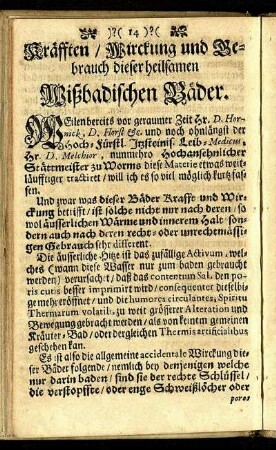 )?( 14 )?(
Kräfften / Wirckung und Ge-
brauch dieser heilsamen
Wißbadischen Bäder.
WEilen bereits vor geraumer Zeit Hr. D. Hor-
nick, D. Horst &c. und noch ohnlängst der
Hoch-Fürstl. Jnsteinis. Leib-Medicus,
Hr. D. Melchior, nunmehro Hochansehnlicher
Stättmeister zu Worms diese Materie etwas weit-
läufftiger tractiret / will ich es so viel möglich kurtz fas-
sen.
Und zwar was dieser Bäder Krafft und Wir-
ckung betrifft / ist solche nicht nur nach deren / so
wol äusserlichen Wärme und inneren Halt / son-
dern auch nach deren recht- oder unrechtmässi-
gen Gebrauch sehr different.
Die äusserliche Hitze ist das zufällige Activum, wel-
ches (wann diese Wasser nur zum baden gebraucht
werden) verursachet / daß das contentum Sal. den po-
ris cutis besser imprimirt wird / consequenter dieselbige
mehr eröffnet / und die humores circulantes, Spiritu
Thermarum volatili, zu weit grösserer Alteration und
Bewegung gebracht werden / als von keinem gemeinen
Kräuter-Bad / oder dergleichen Thermis artificialibus
geschehen kan.
Es ist also die allgemeine accidentale Wirckung die-
ser Bäder folgende / nemlich bey denjenigen welche
nur darin baden / sind sie der rechte Schlüssel /
die verstopffte / oder enge Schweißlöcher oder
poros